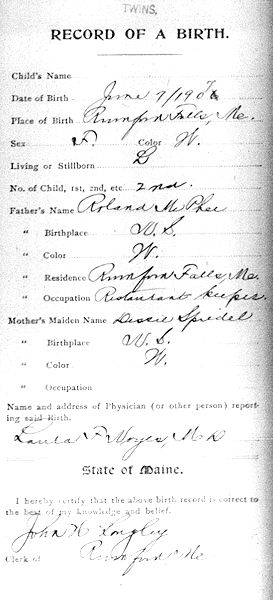 TWINS.
RECORD OF A BIRTH.
Child's Name
Date of Birth June 7/190
Place of Birth Rumford Falls, Me.
Sex F. Color W.
Living or Stillborn L
No. of Child, 1st, 2nd, etc. 2nd.
Father's Name Roland McPhee
" Birthplace U. S.
" Color W.
" Residence Rumford Falls, Me.
" Occupation Restaurant keeper.
Mother's Maiden Name Dessie Spridel
" Birthplace U. S.
" Color W.
" Occupation
Name and address of Physician (or other person) report-
ing said Birth.
F. Noyes, M.D.
State of Maine.
I hereby certify that the above birth record is correct to
the best of my knowledge and belief.
John H Longley
Clerk of Rumford Me